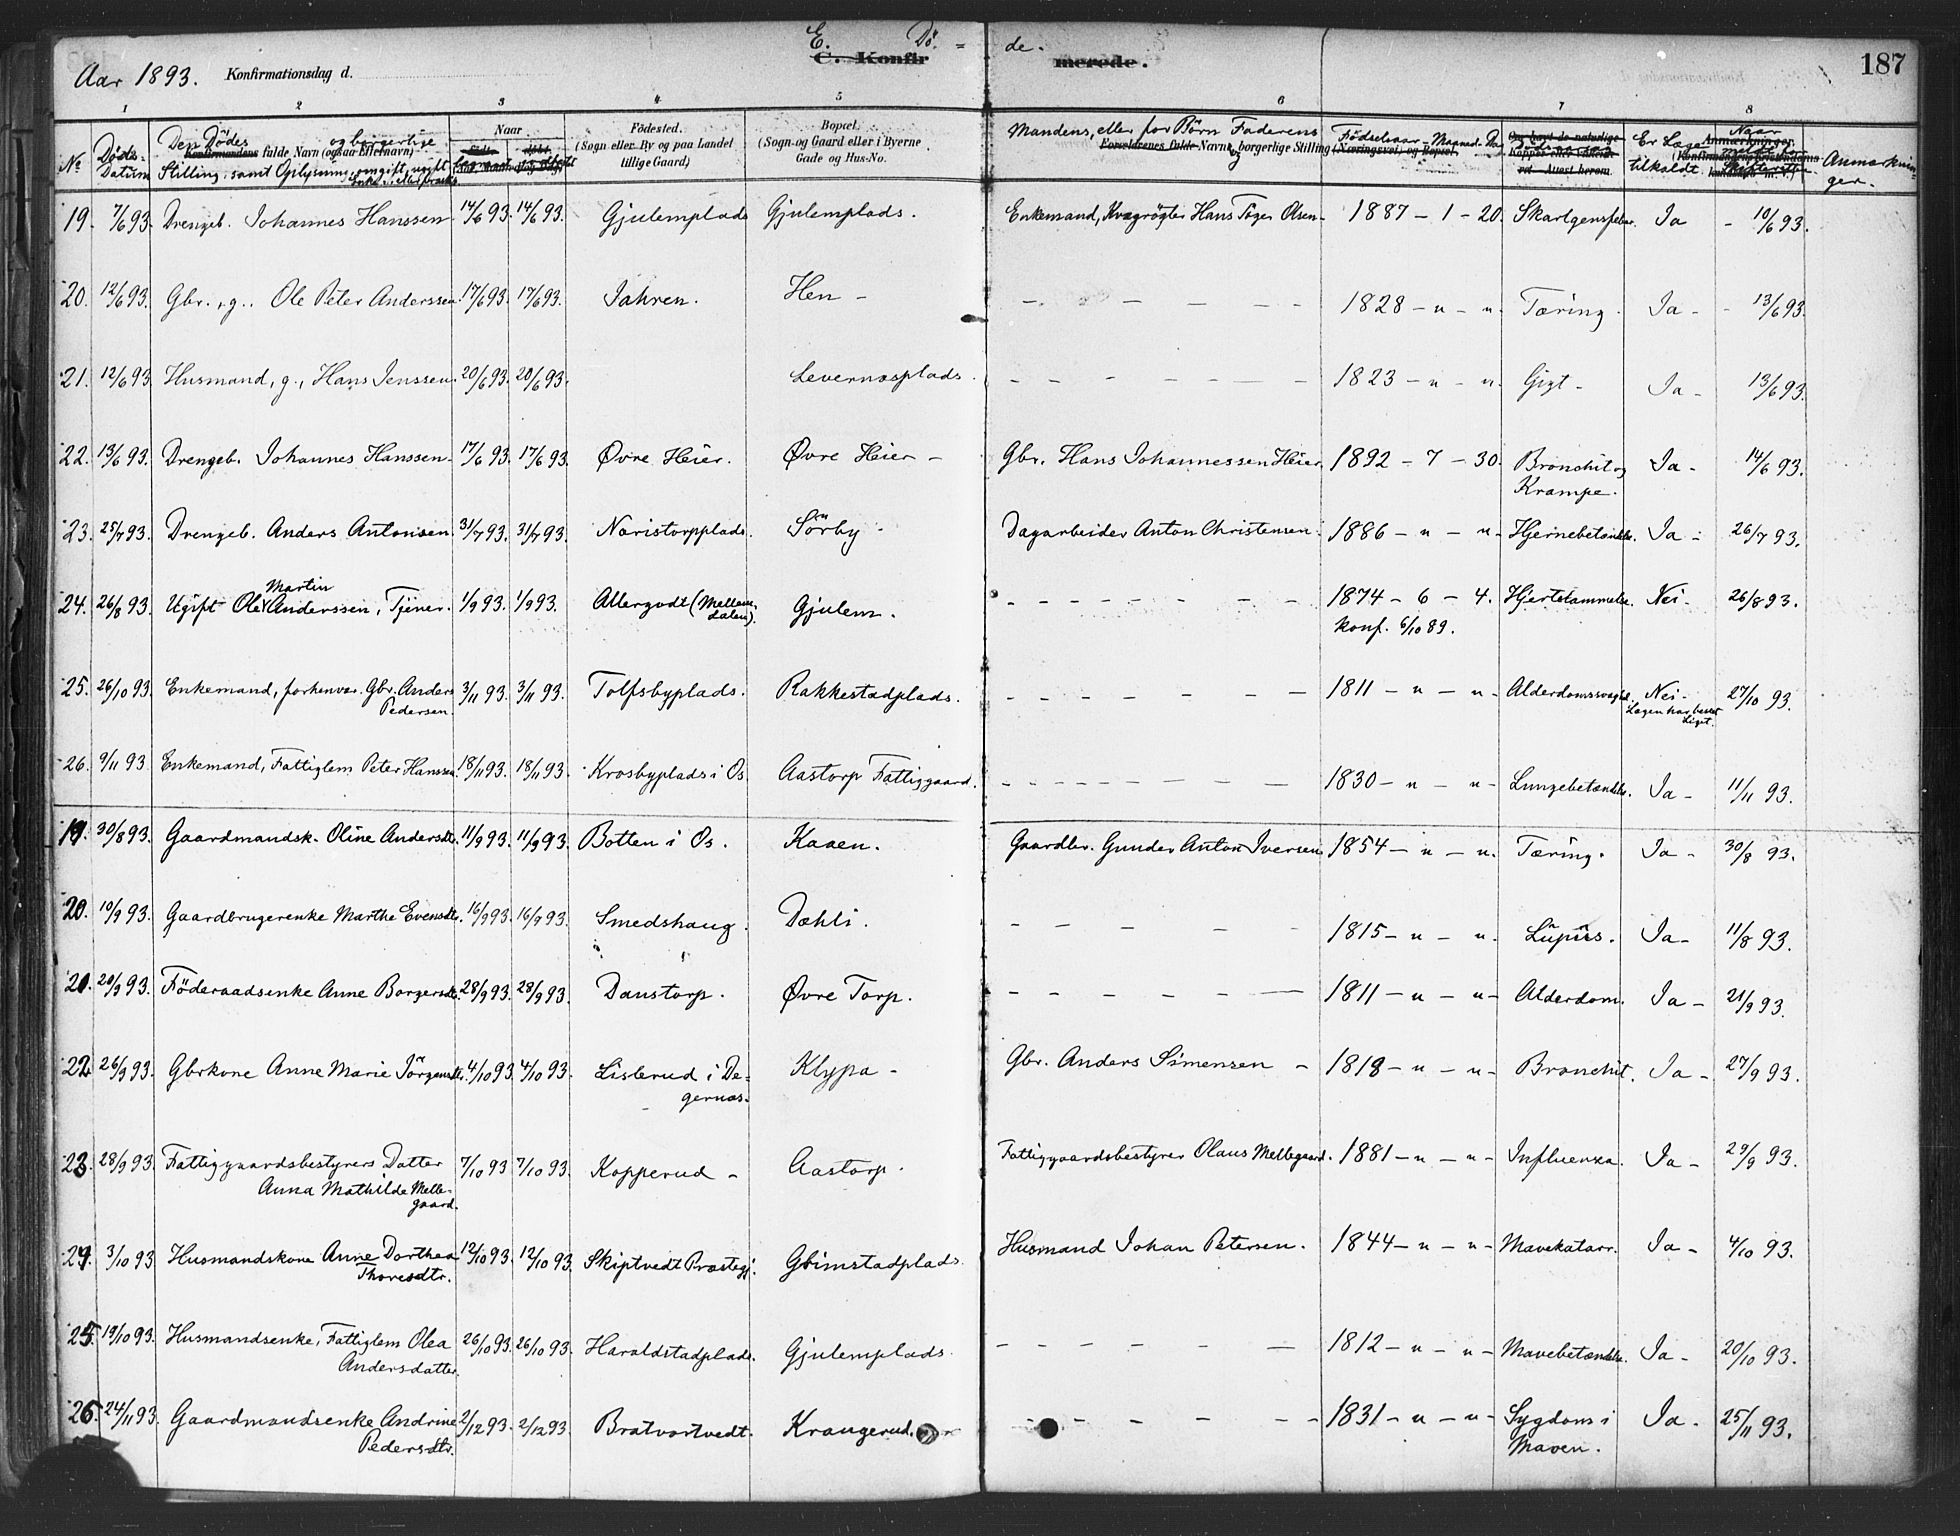 E. Dö = de.
C. Konfir merede. 187
Aar 1893. Konfirmationsdag d.
1 2 3 4 5 6 7 8
No. Döds-Datum Den Dödes fulde Navn (ogsaa Efternavn) og borgerlige Stilling, samt Oplysning, om gift, ugift
Naar
Födested. (Sogn eller By og paa Landet tillige Gaard)
Bopæl. (Sogn og Gaard eller i Byerne Gade og Hus-No.
Mandens, eller for Börn Faderens Navn og borgerlige Stilling
Födselsaar - Maaned - Dag
Er Læge tilkaldt
Anmærkninger.
19. 7/6 93. Drengeb. Johannes Hanssen 14/6 93. 14/6 93. Gjulemplads Gjulemplads. Enkemand, Kvægrögter Hans Töger Olsen - 1887 - 1 - 20. Skarlgensfeber. Ja - 10/6 93.
20. 12/6 93. Gbr., g., Ole Peter Anderssen. 17/6 93. 17/6 93. Jahren. Hen - - - - - - 1828 - " - ". Tæring. Ja - - 13/6 93.
21. 12/6 93. Husmand, g., Hans Jenssen. 20/6 93. 20/6 93. Levernæsplads. - - - - - - 1823 - " - ". Gigt - Ja - 13/6 93.
22. 13/6 93. Drengeb. Johannes Hanssen - 17/6 93. 17/6 93. Øvre Heier. Øvre Heier - Gbr. Hans Johannessen Heier. 1892 - 7 - 30. Bronchit og Ja - 14/6 93.
Krampe.
23. 25/7 93. Drengeb. Anders Antonsen. 31/7 93. 31/7 93. Naristorpplads. Sörby - Dagarbeider Anton Christensen. 1886 - " - " - Hjernebetændelse. Ja - 26/7 93.
Martin
24. 26/8 93. Ugift Ole Anderssen, Tjener. 1/9 93. 1/9 93. Allergodt (Mellem- Gjulem. - - - - - - - 1874 - 6 - 4. Hjertelammelse. Nei - 26/8 93.
dalen). konf. 6/10 89.
25. 26/10 93. Enkemand, forhenvær. Gbr. Anders 3/11 93. 3/11 93. Tolfsbyplads. Rakkestadplads. - - - - - - 1811 - " - " - Alderdomssvaghed. Nei - 27/10 93.
Pedersen. Lægen har beset Liget.
26. 9/11 93. Enkemand, Fattiglem Peter Hanssen. 18/11 93. 18/11 93. Krosbyplads i Os Aastorp Fattiggaard. - - - - - - - 1830 - " - " - Lungebetændelse. Ja - 11/11 93.
19. 30/8 93. Gaardmandsk. Oline Andersdtr. 11/9 93. 11/9 93. Botten i Os. Kaaen. Gaardbr. Gunder Anton Iversen 1854 - " - ". Tæring. Ja - 30/8 93.
20. 10/9 93. Gaardbrugerenke Marthe Evensdtr. 16/9 93. 16/9 93. Smedshaug. Dæhli. - - - - - 1815 - " - ". Lupus. Ja - 11/8 93.
21. 20/9 93. Föderaadsenke Anne Borgersdtr. 28/9 93. 28/9 93. Danstorp. Øvre Torp. - - - - - - 1811 - " - " - Alderdom. Ja - 21/9 93.
22 26/9 93. Gbrkone Anne Marie Jörgensdtr. 4/10 93. 4/10 93. Listerud i De= Klypa - Gbr. Anders Simensen - 1818 - " - " - Bronchit. Ja - 27/9 93.
gernæs-
23. 28/9 93. Fattiggaardsbestyrers Datter 7/10 93 7/10 93. Kopperud - Aastorp. Fattiggaardsbestyrer Olaus Mellegaard. 1881 - " - " - Influenza. Ja - 29/9 93.
Anna Mathilde Melle-
gaard.
24. 3/10 93 Husmandskone Anne Dorthea 12/10 93. 12/10 93. Skiptvedt Præstegj. Grimstadplads. Husmand Johan Petersen. 1844 - " - " - Mavekatarr. Ja - 4/10 93.
Thoresdtr.
25. 19/10 93. Husmandsenke, Fattiglem Olea 26/10 93. 26/10 93. Haraldstadplads. Gjulemplads. - - - - - - 1812 - " - " - Mavebetændelse. Ja - 20/10 93.
Andersdatter.
26. 24/11 93. Gaardmandsenke Andrine 2/12 93. 2/12 93. Bratvortvedt. Krangerud. - - - - - - 1831 - " - " - Sygdom i Ja - 25/11 93.
Pedersdtr. Maven.